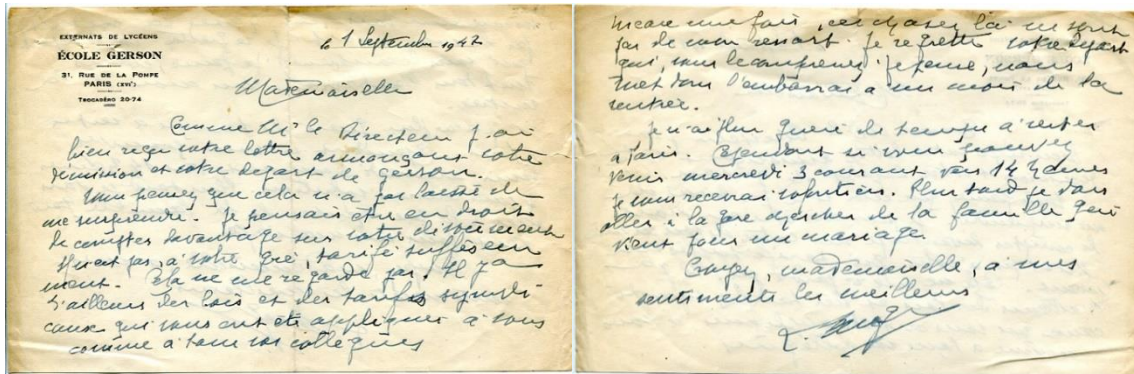 EXTERNATS DE LYCÉENS
ÉCOLE GERSON
31, RUE DE LA POMPE
PARIS (XVIe)
TROCADÉRO 20-74
le 1 Septembre 1947
Mademoiselle
Comme Mr le Directeur j'ai
bien reçu votre lettre annonçant votre
démission et votre départ de Gerson.
Vous pensez que cela n'a pas laissé de
me surprendre. Je pensais être en droit
de compter davantage sur votre dévouement
pas, à votre gré, tarifé suffisam
ment. Cela ne me regarde pas. Il y a
d'ailleurs des lois et des tarifs syndi
caux qui vous ont été appliqués à vous
comme à tous vos collègues
encore une fois, ces choses là ne sont
pas de mon ressort. Je regrette votre départ
qui, vous le comprenez je pense, nous
met dans l'embarras à un mois de la
rentrée.
Je n'ai plus guère de temps à rester
à Paris. Cependant si vous pouvez
venir mercredi 3 courant vers 14 heures
je vous recevrai volontiers. Plus tard je dois
aller à la gare chercher de la famille qui
vient pour un mariage.
Croyez, mademoiselle, à mes
sentiments les meilleurs